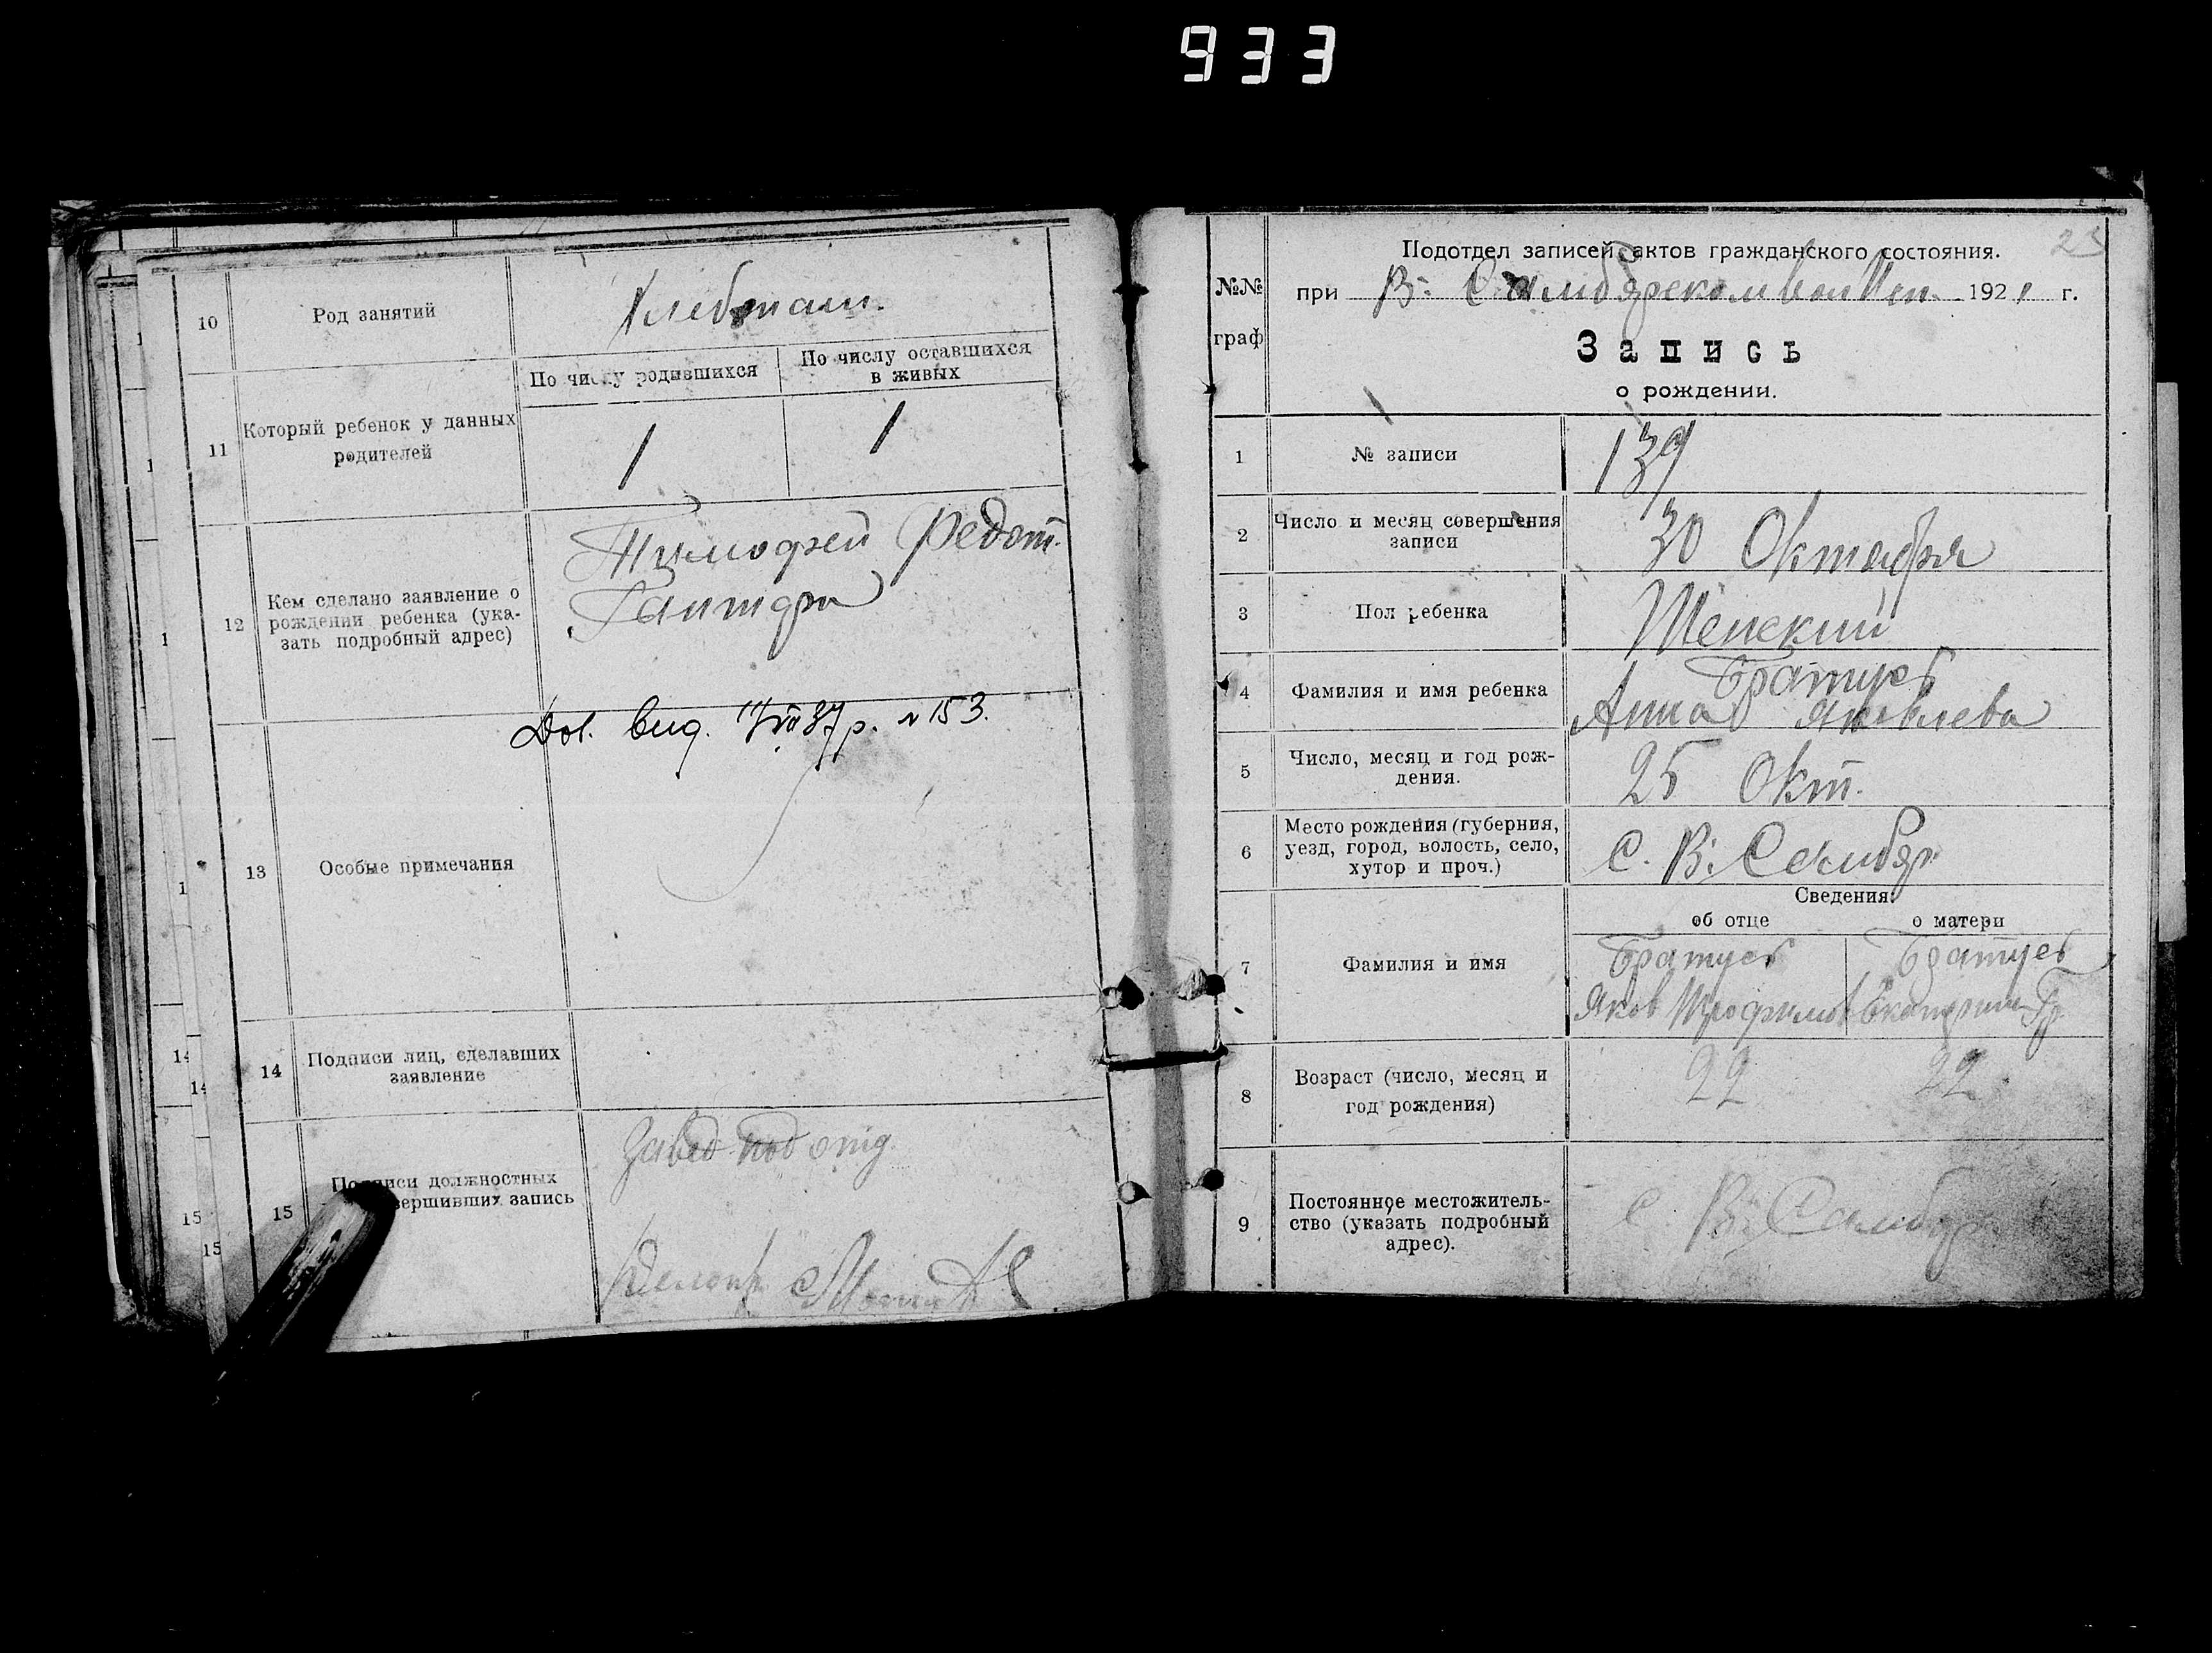 933
10 Род занятий
Хлебопаш.
11 Который ребенок у данных
родителей
По числу родившихся
По числу оставшихся
в живых
1 1
12 Кем сделано заявление о
рождении ребенка (ука-
зать подробный адрес)
Тимофей Федот.
13 Особые примечания
Dov. вид. 37 р. № 153.
14 Подписи лиц, сделавших
заявление
15 Подписи должностных
совершивших запись
Завед под отд.
23
Подотдел записей актов гражданского состояния.
№№
граф
при В. 1921 г.
Запись
о рождении.
1 № записи
139
2 Число и месяц совершения
записи
30 Октября
3 Пол ребенка
Женский
4 Фамилия и имя ребенка
Братуев
Анна Яковлева
5 Число, месяц и год рож-
дения.
25 Окт.
6 Место рождения (губерния,
уезд, город, волость, село,
хутор и проч.)
С. В.
Сведения:
об отце о матери
7 Фамилия и имя
Братуев Братуев
Яков Трофимов Екатерина Гр.
8 Возраст (число, месяц и
год рождения)
22 22
9 Постоянное местожитель-
ство (указать подробный
адрес).
С В.
14
14
15
15